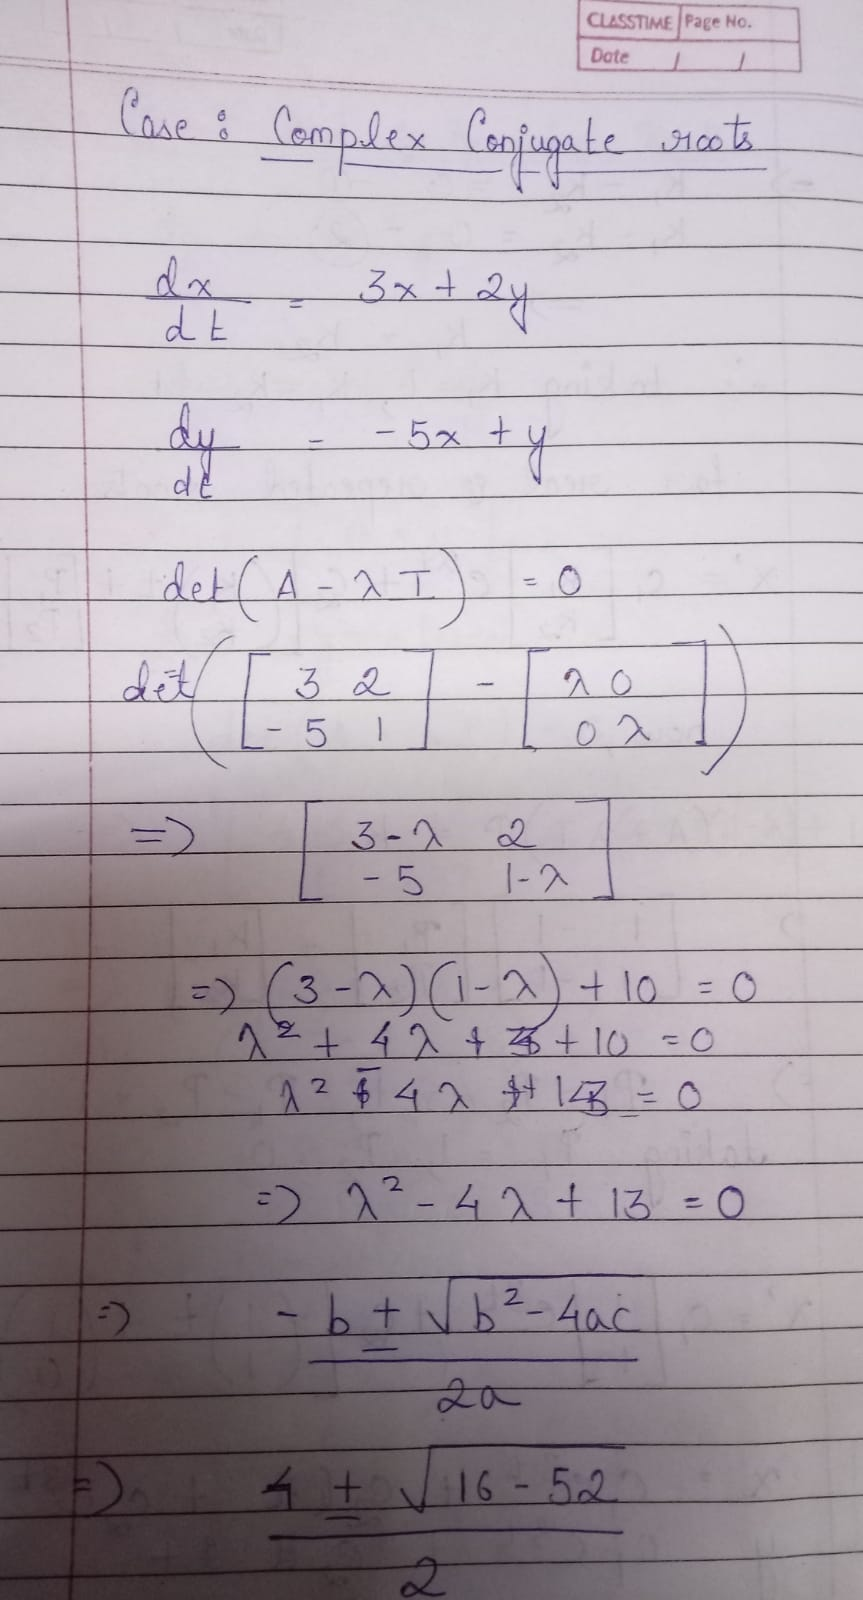 CLASSTIME Page No.
Date / /
Case : Complex Conjugate roots
dx/dt = 3x + 2y
dy/dt = -5x + y
det(A - λI) = 0
det([3 2; -5 1] - [λ 0; 0 λ])
=> [3-λ 2; -5 1-λ]
=> (3-λ)(1-λ) + 10 = 0
λ² + 4λ + 3 + 10 = 0
λ² - 4λ + 13 = 0
=> λ² - 4λ + 13 = 0
=> (-b ± √(b² - 4ac))/2a
=> (4 ± √(16 - 52))/2